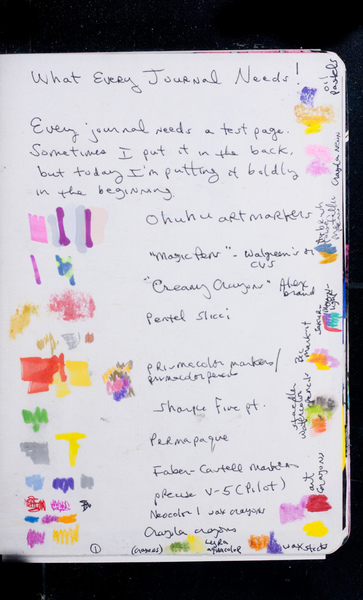 What Every Journal Needs!
Every journal needs a test page.
Sometimes I put it in the back,
but today I'm putting it boldly
in the beginning.
Ohuhu art markers
"Magic Pens" - Walgreen's or
CVS
"Creamy Crayons" Alex
brand
Pentel Slicci
prismacolor markers/
prismacolor pencils
Sharpie Fine pt.
Permapaque
Faber-Castell markers
precise V-5 (Pilot)
Neocolor I wax crayons
Crayola crayons
1
(crayons)
Lyra
aquacolor
oil
pastels
Staedtler
watercolor
art
crayons